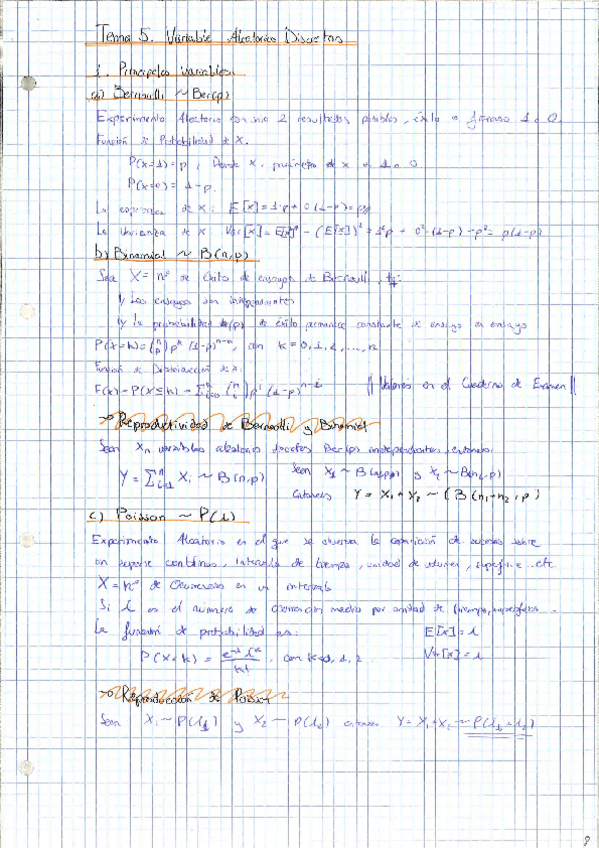 Tema 5. Variable Aleatoria Discretas
1. Principales variables
a) Bernoulli ~ Ber(p)
Experimento Aleatorio con solo 2 resultados posibles, éxito o fracaso 1 o 0.
Función de Probabilidad de X.
P(x=1)=p, Donde X,       x = 1 o 0.
P(x=0) = 1-p.
La esperanza de X: E[x]=1·p+0(1-p)=p
La Varianza de X Var[x]=E[x]² - (E[x])² = 1²p + 0²·(1-p) - p² = p(1-p)
b) Binomial ~ B(n,p)
Sea X = nº de éxitos de ensayos de Bernoulli, tq:
1) Los ensayos son independientes
2) la probabilidad (p) de éxito permanece constante de ensayo en ensayo
P(x=k)=(n k) p^k (1-p)^n-k, con k=0,1,2,...,n
Función de Distribución de X:
F(x)=P(X≤k) = Σ (n i) p^i (1-p)^n-i || Valores en el Cuaderno de Examen ||
→ Reproductividad de Bernoulli y Binomial
Sean Xn variables aleatorias discretas Ber(p) independientes, entonces:
Y = Σ Xi ~ B(n,p) Sean X1 ~ B(n1,p) y X2 ~ B(n2,p)
entonces Y = X1 + X2 ~ (B(n1+n2, p)
c) Poisson ~ P(λ)
Experimento Aleatorio en el que se observa la aparición de sucesos sobre
un soporte continuo, intervalo de tiempo, unidad de volumen, superficie.. etc
X = nº de Ocurrencias en un intervalo
Si λ es el número de ocurrencias medio por unidad de tiempo, superficie...
La función de probabilidad es: E[x]=λ
P(x=k) = e^-λ λ^k / k!, con k=0,1,2 Var[x]=λ
→ Reproducción de Poisson
Sean X1 ~ P(λ1) y X2 ~ P(λ2) entonces Y = X1+X2 ~ P(λ1+λ2)